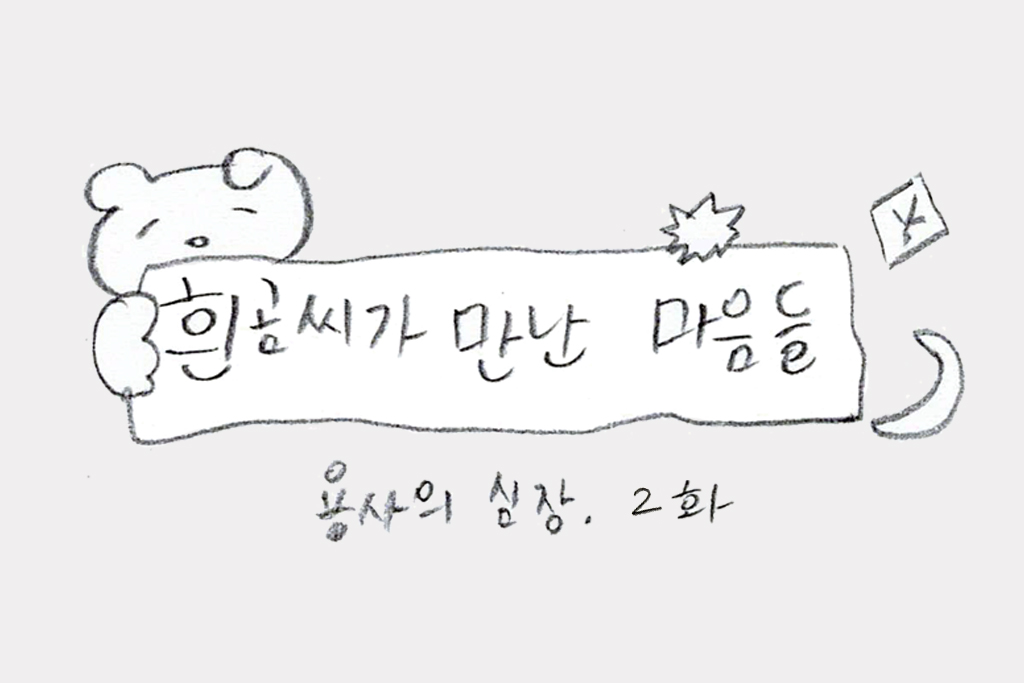 흰곰씨가 만난 마음들
용사의 심장. 2화